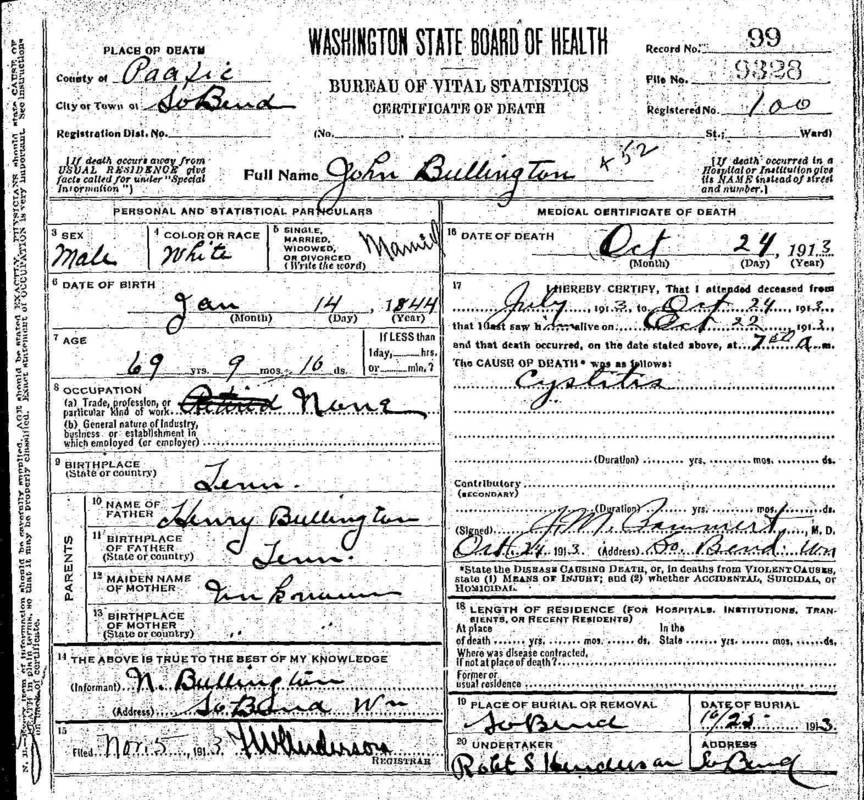 WASHINGTON STATE BOARD OF HEALTH
BUREAU OF VITAL STATISTICS
CERTIFICATE OF DEATH
Record No. 99
File No. 9328
Registered No. 100
PLACE OF DEATH
County of Pacific
City or Town of So Bend
Registration Dist. No.
(No. St.; Ward)
[If death occurs away from
USUAL RESIDENCE give
facts called for under "Special
Information"]
Full Name John Bullington + 52
[If death occurred in a
Hospital or Institution give
its NAME instead of street
and number.]
PERSONAL AND STATISTICAL PARTICULARS
3 SEX
Male
4 COLOR OR RACE
White
5 SINGLE,
MARRIED,
WIDOWED,
OR DIVORCED
(Write the word)
Married
6 DATE OF BIRTH
Jan 14, 1844
(Month) (Day) (Year)
7 AGE
69 yrs. 9 mos. 10 ds.
If LESS than
1 day, hrs.
or min.?
8 OCCUPATION
(a) Trade, profession, or
particular kind of work Retired None
(b) General nature of industry,
business or establishment in
which employed (or employer)
9 BIRTHPLACE
(State or country)
Tenn.
PARENTS
10 NAME OF
FATHER
Henry Bullington
11 BIRTHPLACE
OF FATHER
(State or country)
Tenn.
12 MAIDEN NAME
OF MOTHER
Unknown
13 BIRTHPLACE
OF MOTHER
(State or country)
" "
14 THE ABOVE IS TRUE TO THE BEST OF MY KNOWLEDGE
(Informant) N. Bullington
(Address) So Bend Wn
15
Filed Nov. 5 1913 Henderson
REGISTRAR
MEDICAL CERTIFICATE OF DEATH
16 DATE OF DEATH
Oct 24, 1913
(Month) (Day) (Year)
17 I HEREBY CERTIFY, That I attended deceased from
July 1913, to Oct 24 1913,
that I last saw him alive on Oct 22 1913,
and that death occurred, on the date stated above, at 7 a m.
The CAUSE OF DEATH* was as follows:
Cystitis
(Duration) yrs. mos. ds.
Contributory
(SECONDARY)
(Duration) yrs. mos. ds.
(Signed) J. M. M. D.
Oct. 24 1913 (Address) So. Bend Wn
*State the DISEASE CAUSING DEATH, or, in deaths from VIOLENT CAUSES,
state (1) MEANS OF INJURY; and (2) whether ACCIDENTAL, SUICIDAL, or
HOMICIDAL.
18 LENGTH OF RESIDENCE (FOR HOSPITALS, INSTITUTIONS, TRAN-
SIENTS, OR RECENT RESIDENTS)
At place In the
of death yrs. mos. ds. State yrs. mos. ds.
Where was disease contracted,
if not at place of death?
Former or
usual residence
19 PLACE OF BURIAL OR REMOVAL
So Bend
DATE OF BURIAL
10/25 1913
20 UNDERTAKER
Robt S Henderson
ADDRESS
So Bend
N. B.—Every item of information should be carefully supplied. AGE should be stated EXACTLY. PHYSICIANS should state CAUSE OF
DEATH in plain terms, so that it may be properly classified. Exact statement of OCCUPATION is very important. See instructions
on back of certificate.